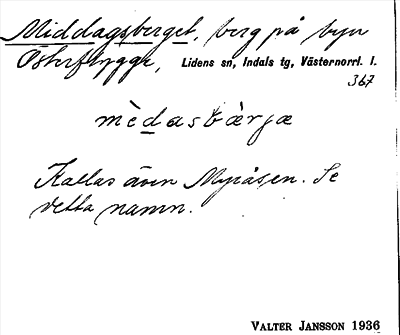 Middagsberget, berg på byn
Österflygge, Lidens sn, Indals tg, Västernorrl. l.
367
mèdasbàrjæ
Kallas även Myråsen. Se
detta namn.
VALTER JANSSON 1936